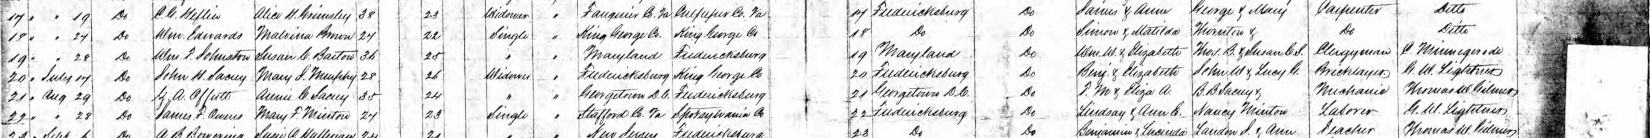 17 " " 19 Do C. C. Heflin Alice H. Grimsley 38 23 Widower " Fauquier Co. Va Culpeper Co. Va 17 Fredericksburg Do James & Ann George & Mary Carpenter Ditto
18 " " 24 Do Wm. Edwards Malvina Brown 24 22 Single " King George Co. King George Co 18 Do Do Simon & Matilda Thornton & Do Ditto
19 " " 28 Do Wm. P. Johnston Susan C. Barton 36 25 " " Maryland Fredericksburg 19 Maryland Do Wm. W. & Elizabeth Thos. B. & Susan C. S. Clergyman C. Minnegerode
20 " July 17 Do John H. Lacey Mary S. Murphy 28 26 Widower " Fredericksburg King George Co 20 Fredericksburg Do Benj. & Elizabeth John W & Lucy A. Bricklayer G. W. Lightner
21 " Aug 29 Do Z. A. Offutt Annie C. Lacey 35 24 " " Georgetown D.C. Fredericksburg 21 Georgetown D.C. Do T. M & Eliza A B B Lacey & Mechanic Thomas W. Gilmer
22 " " 28 Do James F. Owens Mary F. Minton 27 23 Single " Stafford Co. Va Spotsylvania Co 22 Fredericksburg Do Lindsay & Ann E. Nancy Minton Laborer G. W. Lightner
23 " Sept 6 Do A. B. Bowering 24 21 " " New Jersey Fredericksburg 23 Do Do Benjamin & Lucinda Landon J. & Ann Teacher Thomas W. Gilmer